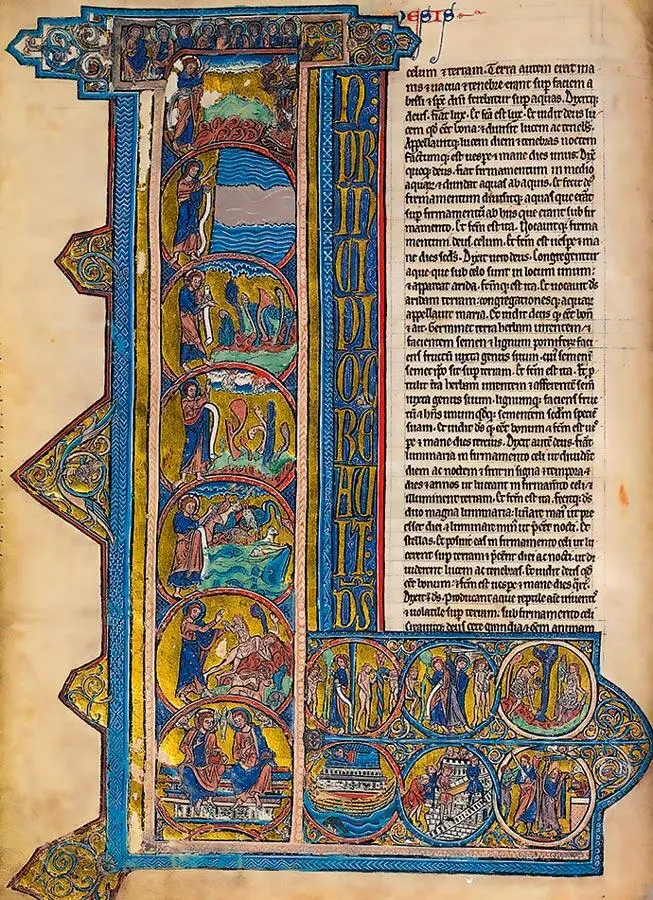 ESIS
N:
PR
IN
CI
PI
O:C
RE
AU
IT:
DS
celum ⁊ terram. Terra autem erat ina
nis ⁊ uacua ⁊ tenebre erant sup faciem a
bissi ⁊ sp̄s dn̄i ferebatur sup aquas. Dixitq;
deus. fiat lux. Et fc̄a est lux. et uidit deus lu
cem qd̄ eet bona. ⁊ diuisit lucem ac tenebs.
Appellauitq; lucem diem ⁊ tenebras noctem
factumq; est uespe ⁊ mane dies unus. Dix̄
quoq; deus. fiat firmamentum in medio
aquar̄ ⁊ diuidat aquas ab aquis. et fecit ds̄
firmamentum diuisitq; aquas que erāt
sup firmamentū ab hiis que erant sub fir
mamento. Et fc̄m est ita. Uocauitq; firma
mentum deus celum. et fc̄m est uespe ⁊ ma
ne dies scds̄. Dixit uero deus. Congregentur
aque que sub celo sunt in locum unum:
⁊ appareat arida. fc̄mq; est ita. Et uocauit ds̄
aridam terram: congregationesq; aquar̄
appellauit maria. Et uidit deus qd̄ eet bon̄
⁊ ait. Germinet terra herbam uirentem ⁊
facientem semen ⁊ lignum pomiferū faci
ens fructū iuxta genus suum. cui semen ī
semetip̄o sit sup terram. Et fc̄m est ita. Et p
tulit tr̄a herbam uirentem ⁊ afferentē sem̄
iuxta genus suum. lignumq; faciens fruc
tū ⁊ hn̄s unumqdq; sementem scdm speciē
suam. et uidit ds̄ qd̄ eet bonum ⁊ fc̄m est ues
pe ⁊ mane dies tercius. Dixit autē deus. fiāt
luminaria in firmamento celi ut diuidāt
diem ac noctem ⁊ sint in signa ⁊ tempora ⁊
dies ⁊ annos ut luceant in firmam̄to celi ⁊
illuminent terram. Et fc̄m est ita. fecitq; ds̄
duo magna luminaria: luminare mai᷒ ut pre
esset diei ⁊ luminare min᷒ ut p̄eet nocti. Et
stellas. Et posuit eas in firmamento celi ut lu
cerent sup terram ⁊ p̄eent diei ac nocti. ut di
uiderent lucem ac tenebras. Et uidit deus qd̄
eet bonum: ⁊ fc̄m est uespe ⁊ mane dies qr̄t᷒.
Dixit ⁊ ds̄. Producant aque reptile aīe uiuent᷒
⁊ uolatile sup terram. sub firmamento celi
Creauitq; deus cete grandia ⁊ om̄em animam